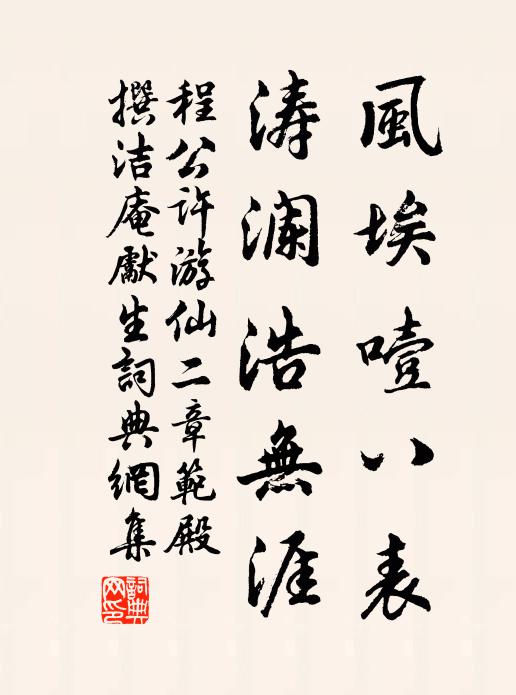 風埃噎八表
濤瀾浩無涯
程公许游仙二章範殿
撰洁庵獻生詞典網集
詞典
网印